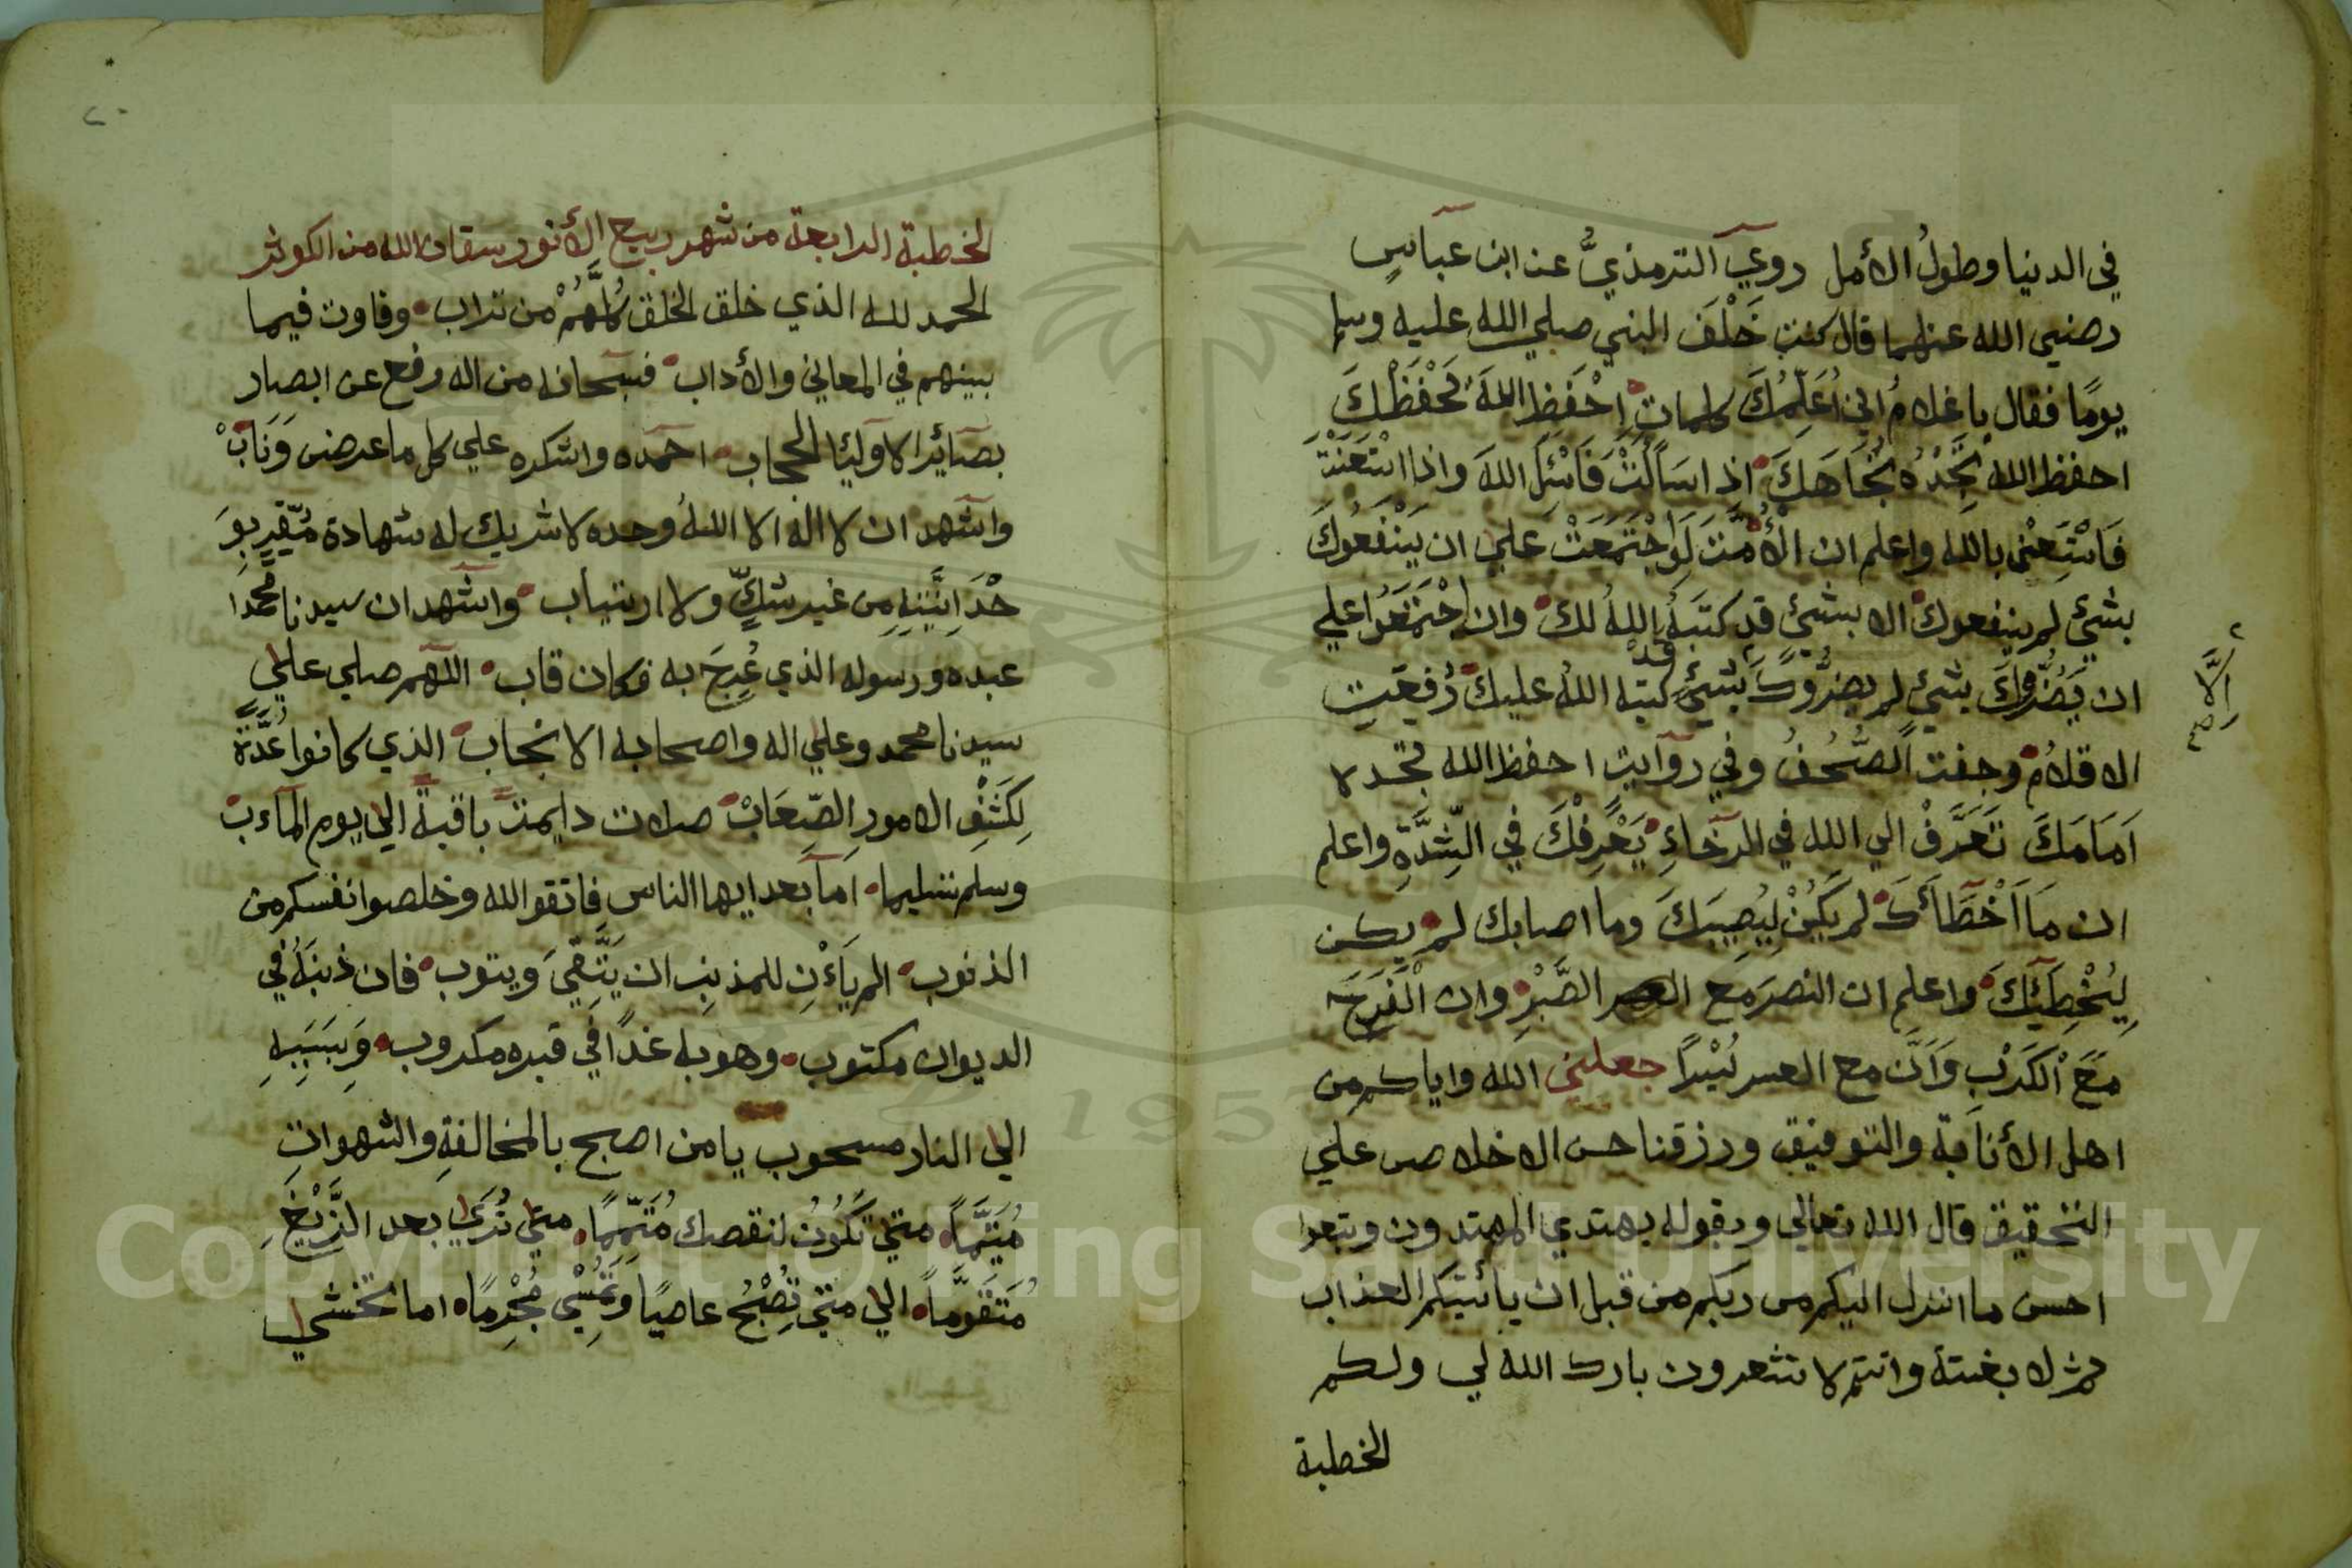 في الدنيا وطولُ الأمل روي الترمذيُّ عن ابن عباسٍ
رضي الله عنهما قال كنت خَلْفَ النبي صلي الله عليه وسلم
يومًا فقال يا غلامُ اني اُعَلِّمُكَ كلمات احْفَظِ اللهَ يَحْفَظْكَ
احفظ الله تَجِدْهُ تُجَاهَكَ اذا سَاَلْتَ فَاسْئَلِ اللهَ واذا اسْتَعَنْتَ
فَاسْتَعِنْ بالله واعلم ان الأُمَّتَ لَوِاجْتَمَعَتْ علي ان يَنْفَعُوكَ
بشيءٍ لم ينفعوك الا بشيءٍ قد كتبَهُ اللهُ لك وان اجْتَمَعُوا علي
ان يَضُرُّوكَ بشيءٍ لم يضرُّوك بشيءٍ قد كتبه اللهُ عليك رُفِعَتِ
إلَّا صح
الاقلامُ وجفت الصُّحُفُ وفي روايت احفظ الله تجده
اَمَامَكَ تَعَرَّفْ الي الله في الرخاءِ يَعْرِفْكَ في الشِّدَّةِ واعلم
ان مَا اَخْطَأَكَ لم يَكُنْ لِيُصِيبَكَ وما اصابك لم يكن
لِيُخْطِئَكَ واعلم ان النصرَ مع الصَّبْرِ وان الْفَرَجَ
مَعَ الْكَرْبِ وَاَنَّ مع العسر يُسْرًا جعلني الله واياكم من
اهل الأنابة والتوفيق ورزقنا حسن الاخلاص علي
التحقيق قال الله تعالي وبقوله يهتدي المهتدون وتبعوا
احسن ما انزل اليكم من ربكم من قبل ان يأتيكم العذاب
بغتة وانتم لا تشعرون بارك الله لي ولكم
الخطبة
٢٠
الخطبة الرابعة من شهر ربيع الأنور سقانا الله من الكوثر
الحمد لله الذي خلق الخلق كُلَّهُمْ من تراب وفاوت فيما
بينهم في المعاني والأداب فسبحانه من اله رفع عن ابصار
بصآئر الاوليا الحجاب احمده واشكره علي كل ما عرض وَنَابْ
واشهد ان لا اله الا اللهُ وحده لا شريك له شهادة مُقِرٍّ بِوَ
حْدَانِيَّتِهِ مِن غير شكٍّ ولا ارتياب واشهد ان سيدنا محمدا
عبده ورسوله الذي عُرِجَ به فكان قاب اللهم صلي علي
سيدنا محمد وعلي اله واصحابه الانجاب الذي كانوا عُدَّةً
لِكَشْفِ الامورِ الصِّعَابْ صلات دايمتً باقيةً الي يوم المآءب
وسلم تسليما اَما بعد ايها الناس فاتقو الله وخلصوا انفسكم من
الذنوب الم يَاءْنِ للمذنِبِ ان يَتَّقِيَ ويتوب فان ذنبَهُ في
الديوان مكتوب وهو به غدًا في قبره مكروب وَبِسَبَبِهِ
الي النار مسحوب يا من اصبح بالمخالفةِ والشهواتِ
مُتَيَّمًا متي تَكُونُ لنقصك مُتَمِّمًا متي تُرَي بعد الزَّيْغِ
مُتَقَوِّمًا الي متي تُصْبِحُ عاصيًا وَتُمْسِي مُجْرِمًا اما تخشي